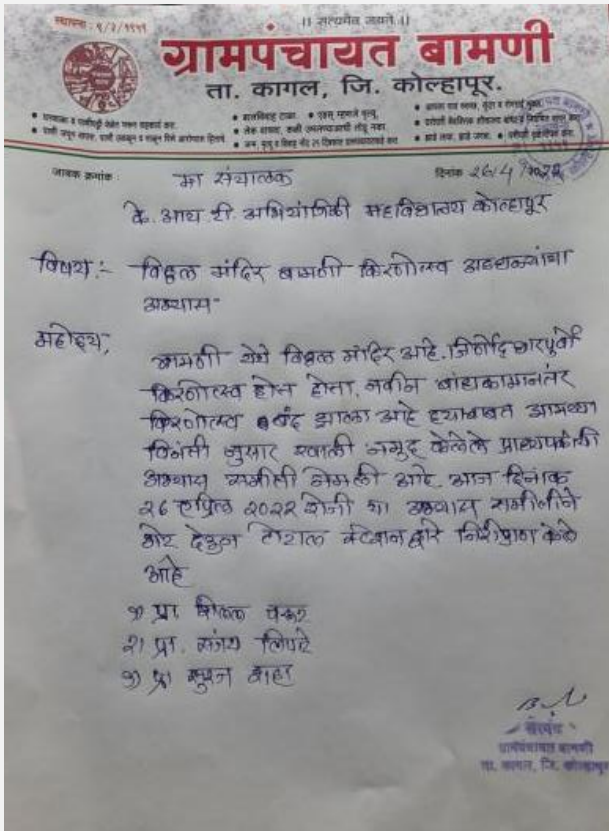 स्थापना : ९/२/१९५९
।। सत्यमेव जयते ।।
ग्रामपंचायत बामणी
ता. कागल, जि. कोल्हापूर.
जावक क्रमांक :
दिनांक २६/4/२०२२
मा संचालक
के. आय टी. अभियांत्रिकी महाविद्यालय कोल्हापूर
विषय :- विठ्ठल मंदिर बामणी किरणोत्स्व अडथळ्यांचा
अभ्यास
महोदय,
बामणी येथे विठ्ठल मंदिर आहे. जिर्णोद्धारपूर्वी
किरणोत्स्व होत होता. नवीन बांधकामानंतर
किरणोत्स्व बंद झाला आहे ह्याबाबत आमच्या
विनंती नुसार खाली नमुद केलेले प्राध्यापकांची
अभ्यास समीती नेमली आहे. आज दिनांक
२६ एप्रिल २०२२ रोजी या अभ्यास समीतीने
भेट देवुन टोटल स्टेशन द्वारे निरीक्षण केले
आहे
१) प्रा शितल
२) प्रा. संजय लिपटे
३) प्रा सुरज शहा
सरपंच
ग्रामपंचायत बामणी
ता. कागल, जि. कोल्हापूर